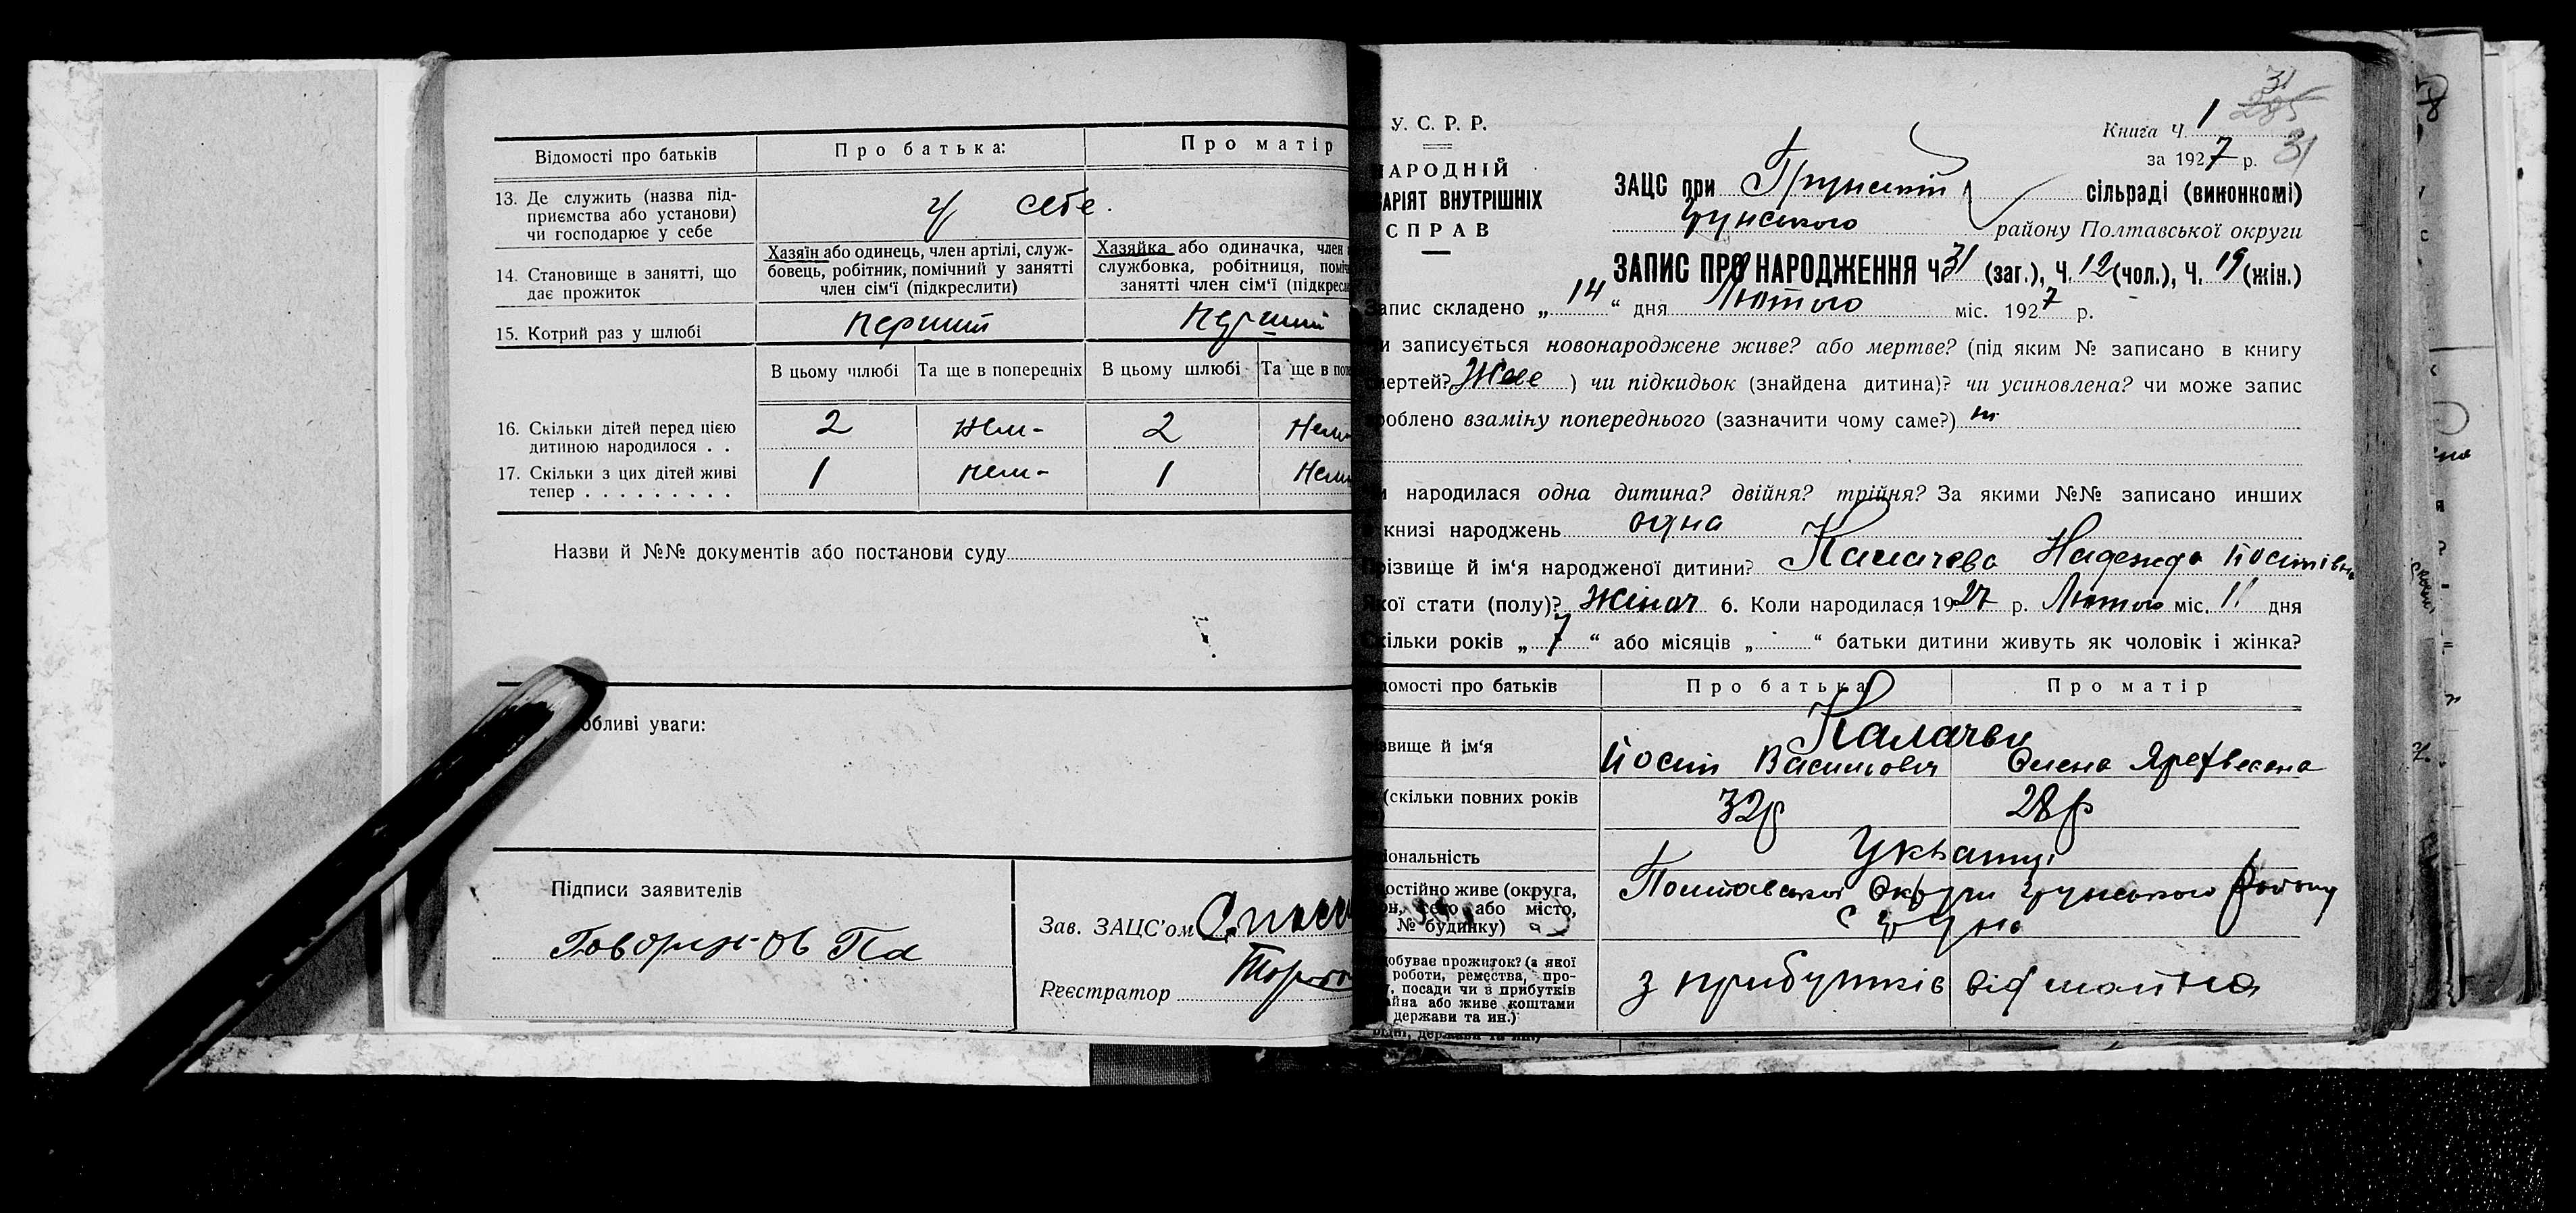 Відомості про батьків
Про батька:
Про матір
13. Де служить (назва під-
приємства або установи)
чи господарює у себе
у себе.
14. Становище в занятті, що
дає прожиток
Хазяїн або одинець, член артілі, служ-
бовець, робітник, помічний у занятті
член сім'ї (підкреслити)
Хазяйка або одиначка, член
службовка, робітниця, поміч
занятті член сім'ї (підкресл
15. Котрий раз у шлюбі
перший
перший
В цьому шлюбі
Та ще в попередніх
В цьому шлюбі
Та ще в попе
16. Скільки дітей перед цією
дитиною народилося . .
2
нем-
2
Нем-
17. Скільки з цих дітей живі
тепер . . . . . . . . .
1
нем-
1
Нем
Назви й №№ документів або постанови суду
обливі уваги:
Підписи заявителів
Зав. ЗАЦС'ом
Реєстратор
У. С. Р. Р.
АРОДНІЙ
АРІЯТ ВНУТРІШНІХ
СПРАВ
31
285
Книга Ч. 1
за 1927 р. 31
ЗАЦС при Грунській сільраді (виконкомі)
Грунського району Полтавської округи
ЗАПИС ПРО НАРОДЖЕННЯ Ч 31 (заг.), Ч. 12 (чол.), Ч. 19 (жін.)
апис складено „ 14 “ дня Лютого міс. 1927 р.
и записується новонароджене живе? або мертве? (під яким № записано в книгу
мертей? Живе ) чи підкидьок (знайдена дитина)? чи усиновлена? чи може запис
роблено взаміну попереднього (зазначити чому саме?) ні
и народилася одна дитина? двійня? трійня? За якими №№ записано инших
книзі народжень одна
різвище й ім'я народженої дитини? Калачова Надежда Йосипівна
кої стати (полу)? Жіноч 6. Коли народилася 1927 р. Лютого міс. 11 дня
кільки років „ 7 “ або місяців „ “ батьки дитини живуть як чоловік і жінка?
домості про батьків
Про батька
Про матір
звище й ім'я
Калачви
Йосип Василович
Олена
(скільки повних років
32р
28р
іональність
Українці
остійно живе (округа,
он, село або місто,
№ будинку)
Полтавської Округи Грунського району
с Грунь
добуває прожиток? (з якої
роботи, ремества, про-
у, посади чи з прибутків
айна або живе коштами
держави та ин.)
з прибутків від майна